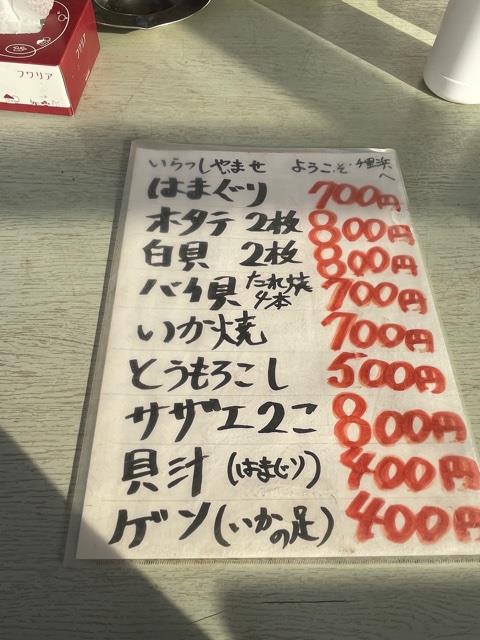 フワリア
フワリア
いらっしゃいませ ようこそ 千里浜へ
はまぐり 700円
ホタテ 2枚 800円
白貝 2枚 800円
バイ貝 たれ焼 4本 700円
いか焼 700円
とうもろこし 500円
サザエ2こ 800円
貝汁 (はまぐり) 400円
ゲソ (いかの足) 400円